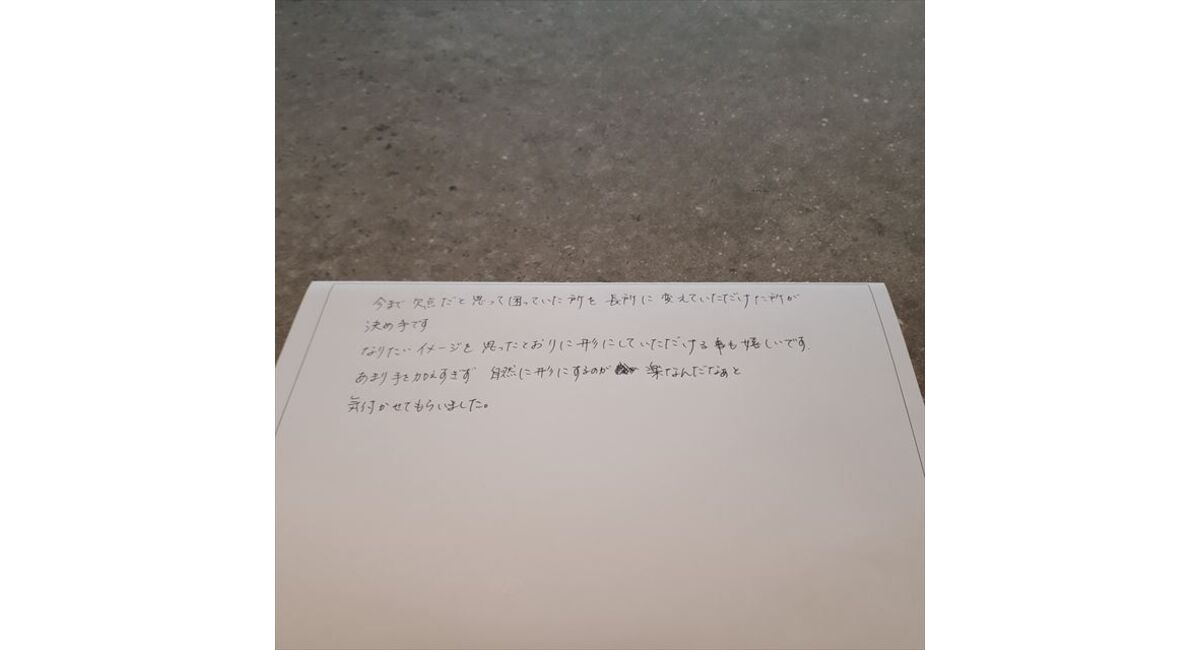 今まで欠点だと思って困っていた所を長所に変えていただけた所が
決め手です
なりたいイメージを思ったとおりに形にしていただける事も嬉しいです.
あまり手を加えすぎず 自然に形にするのが 楽なんだなぁと
気付かせてもらいました。